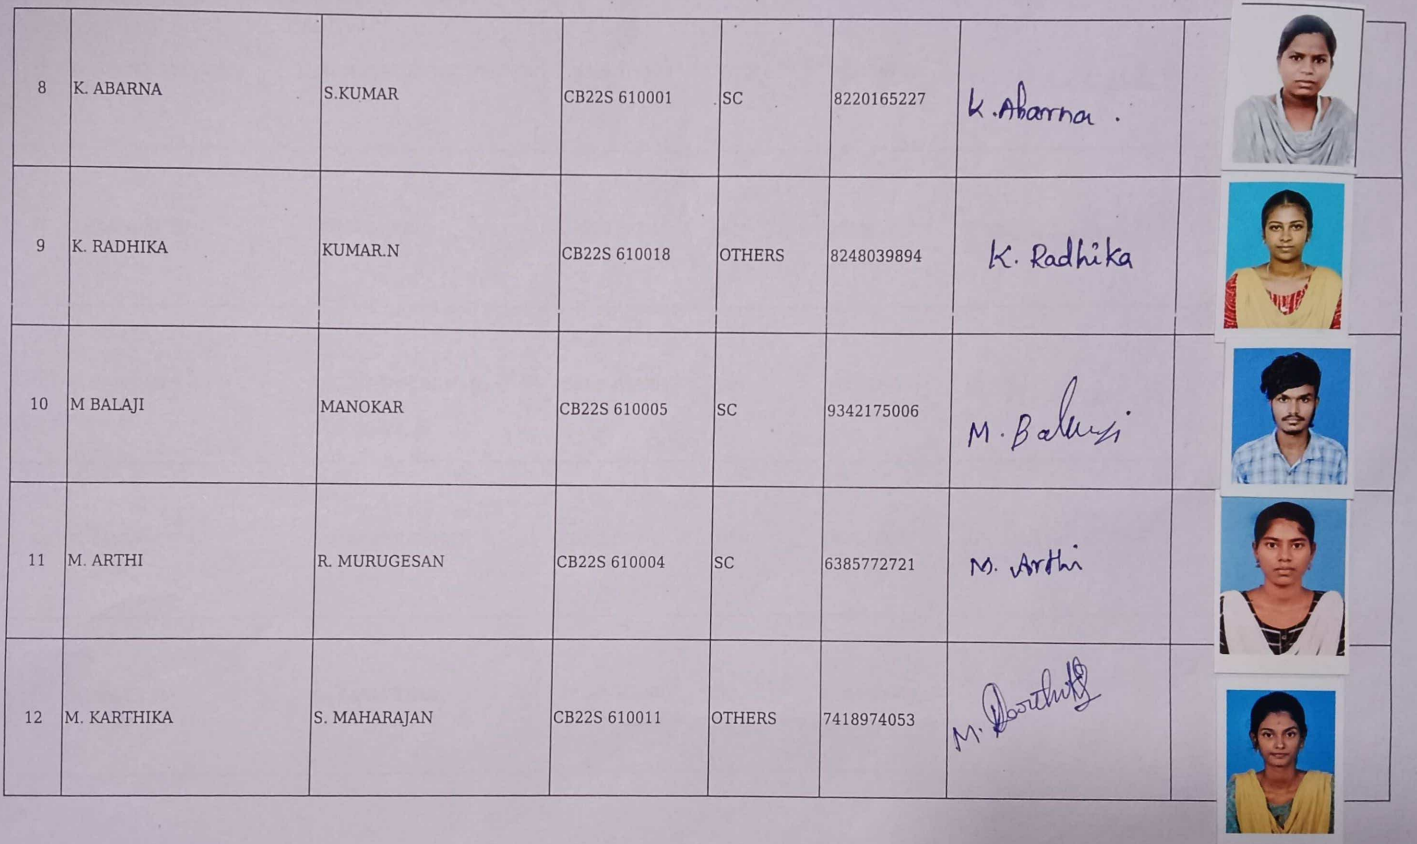 8 K. ABARNA S.KUMAR CB22S 610001 SC 8220165227 K. Abarna .
9 K. RADHIKA KUMAR.N CB22S 610018 OTHERS 8248039894 K. Radhika
10 M BALAJI MANOKAR CB22S 610005 SC 9342175006 M. Balaji
11 M. ARTHI R. MURUGESAN CB22S 610004 SC 6385772721 M. Arthi
12 M. KARTHIKA S. MAHARAJAN CB22S 610011 OTHERS 7418974053 M.